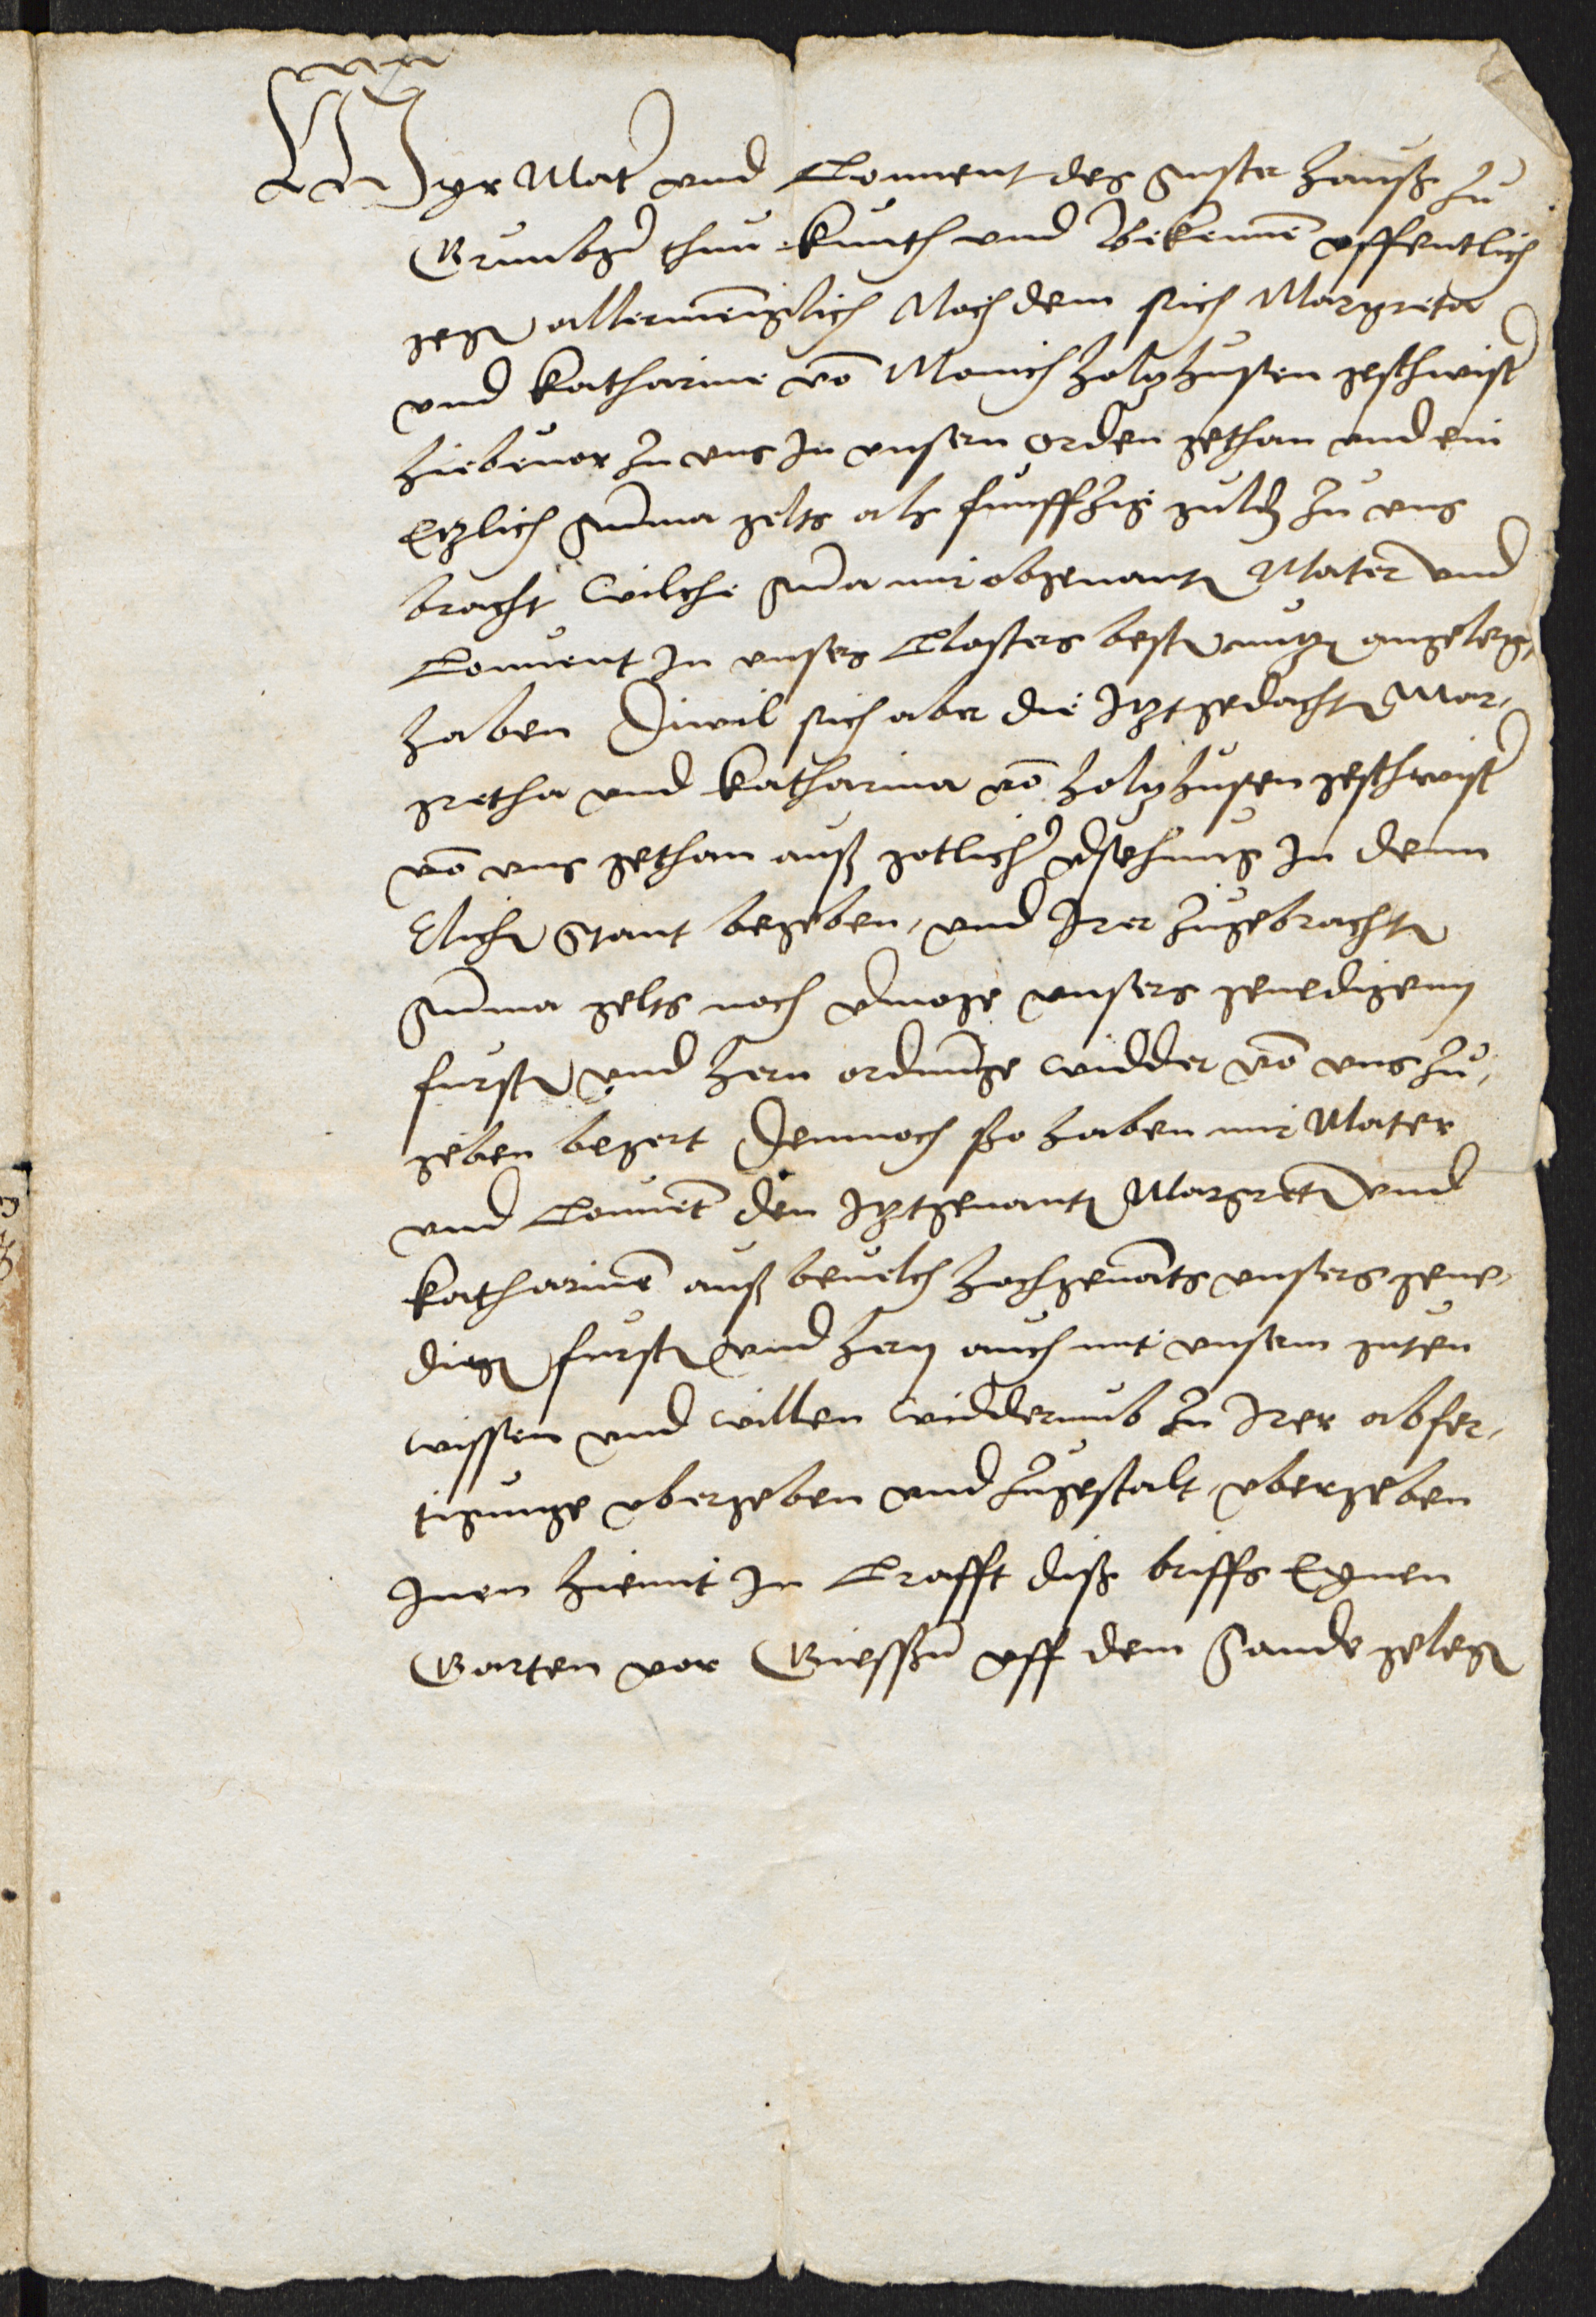 Wyr Mater und Convent des suster hauß zu
Grunbergk thun kunth und bekennen uffentlich
gegen allermeniglich Noch dem sich Margreta
und Katharine von Monich holtzhusen geschwister
hiebeuor zu uns In unsern orden gethan und ein
Etzlich summa gelts als funffzig guld zu uns
bracht Wilche summa mir obgenanten Mater und
Conuent In unsers Closters besten nutz angelegt
haben Diwil sich aber die Itztgedachten Mar-
gretha und Katharina von holtzhusen geschwister
von uns gethan auß gotlicher versehung In denn
Elichen stant begeben, und Irer zugebrachten
summa gelts noch vermoge unsers genedigenn
fursten und hern ordnunge widder von uns zu-
geben begert Demnoch sso haben mir Mater
und Conuent den Itztgenanten Margreten und
Katharinen auß beuelch hochgenants unsers gene-
digen fursten und hern auch mit unserm guten
wissen und willen widdermub zu Irer abfer-
tigunge ubergeben und zugestalt, ubergeben
Inen hiemit In Crafft diß briffs Eynen
Garten vor Giessen uff dem Sande gelegen